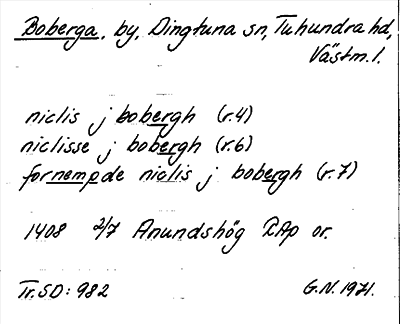 Boberga, by, Dingtuna sn, Tuhundra hd,
Västm. l.
niclis j bobergh (r.4)
niclisse j bobergh (r.6)
fornempde niclis j bobergh (r.7)
1408 2/7 Anundshög RAp or.
Tr. SD: 982
G.N. 1971.